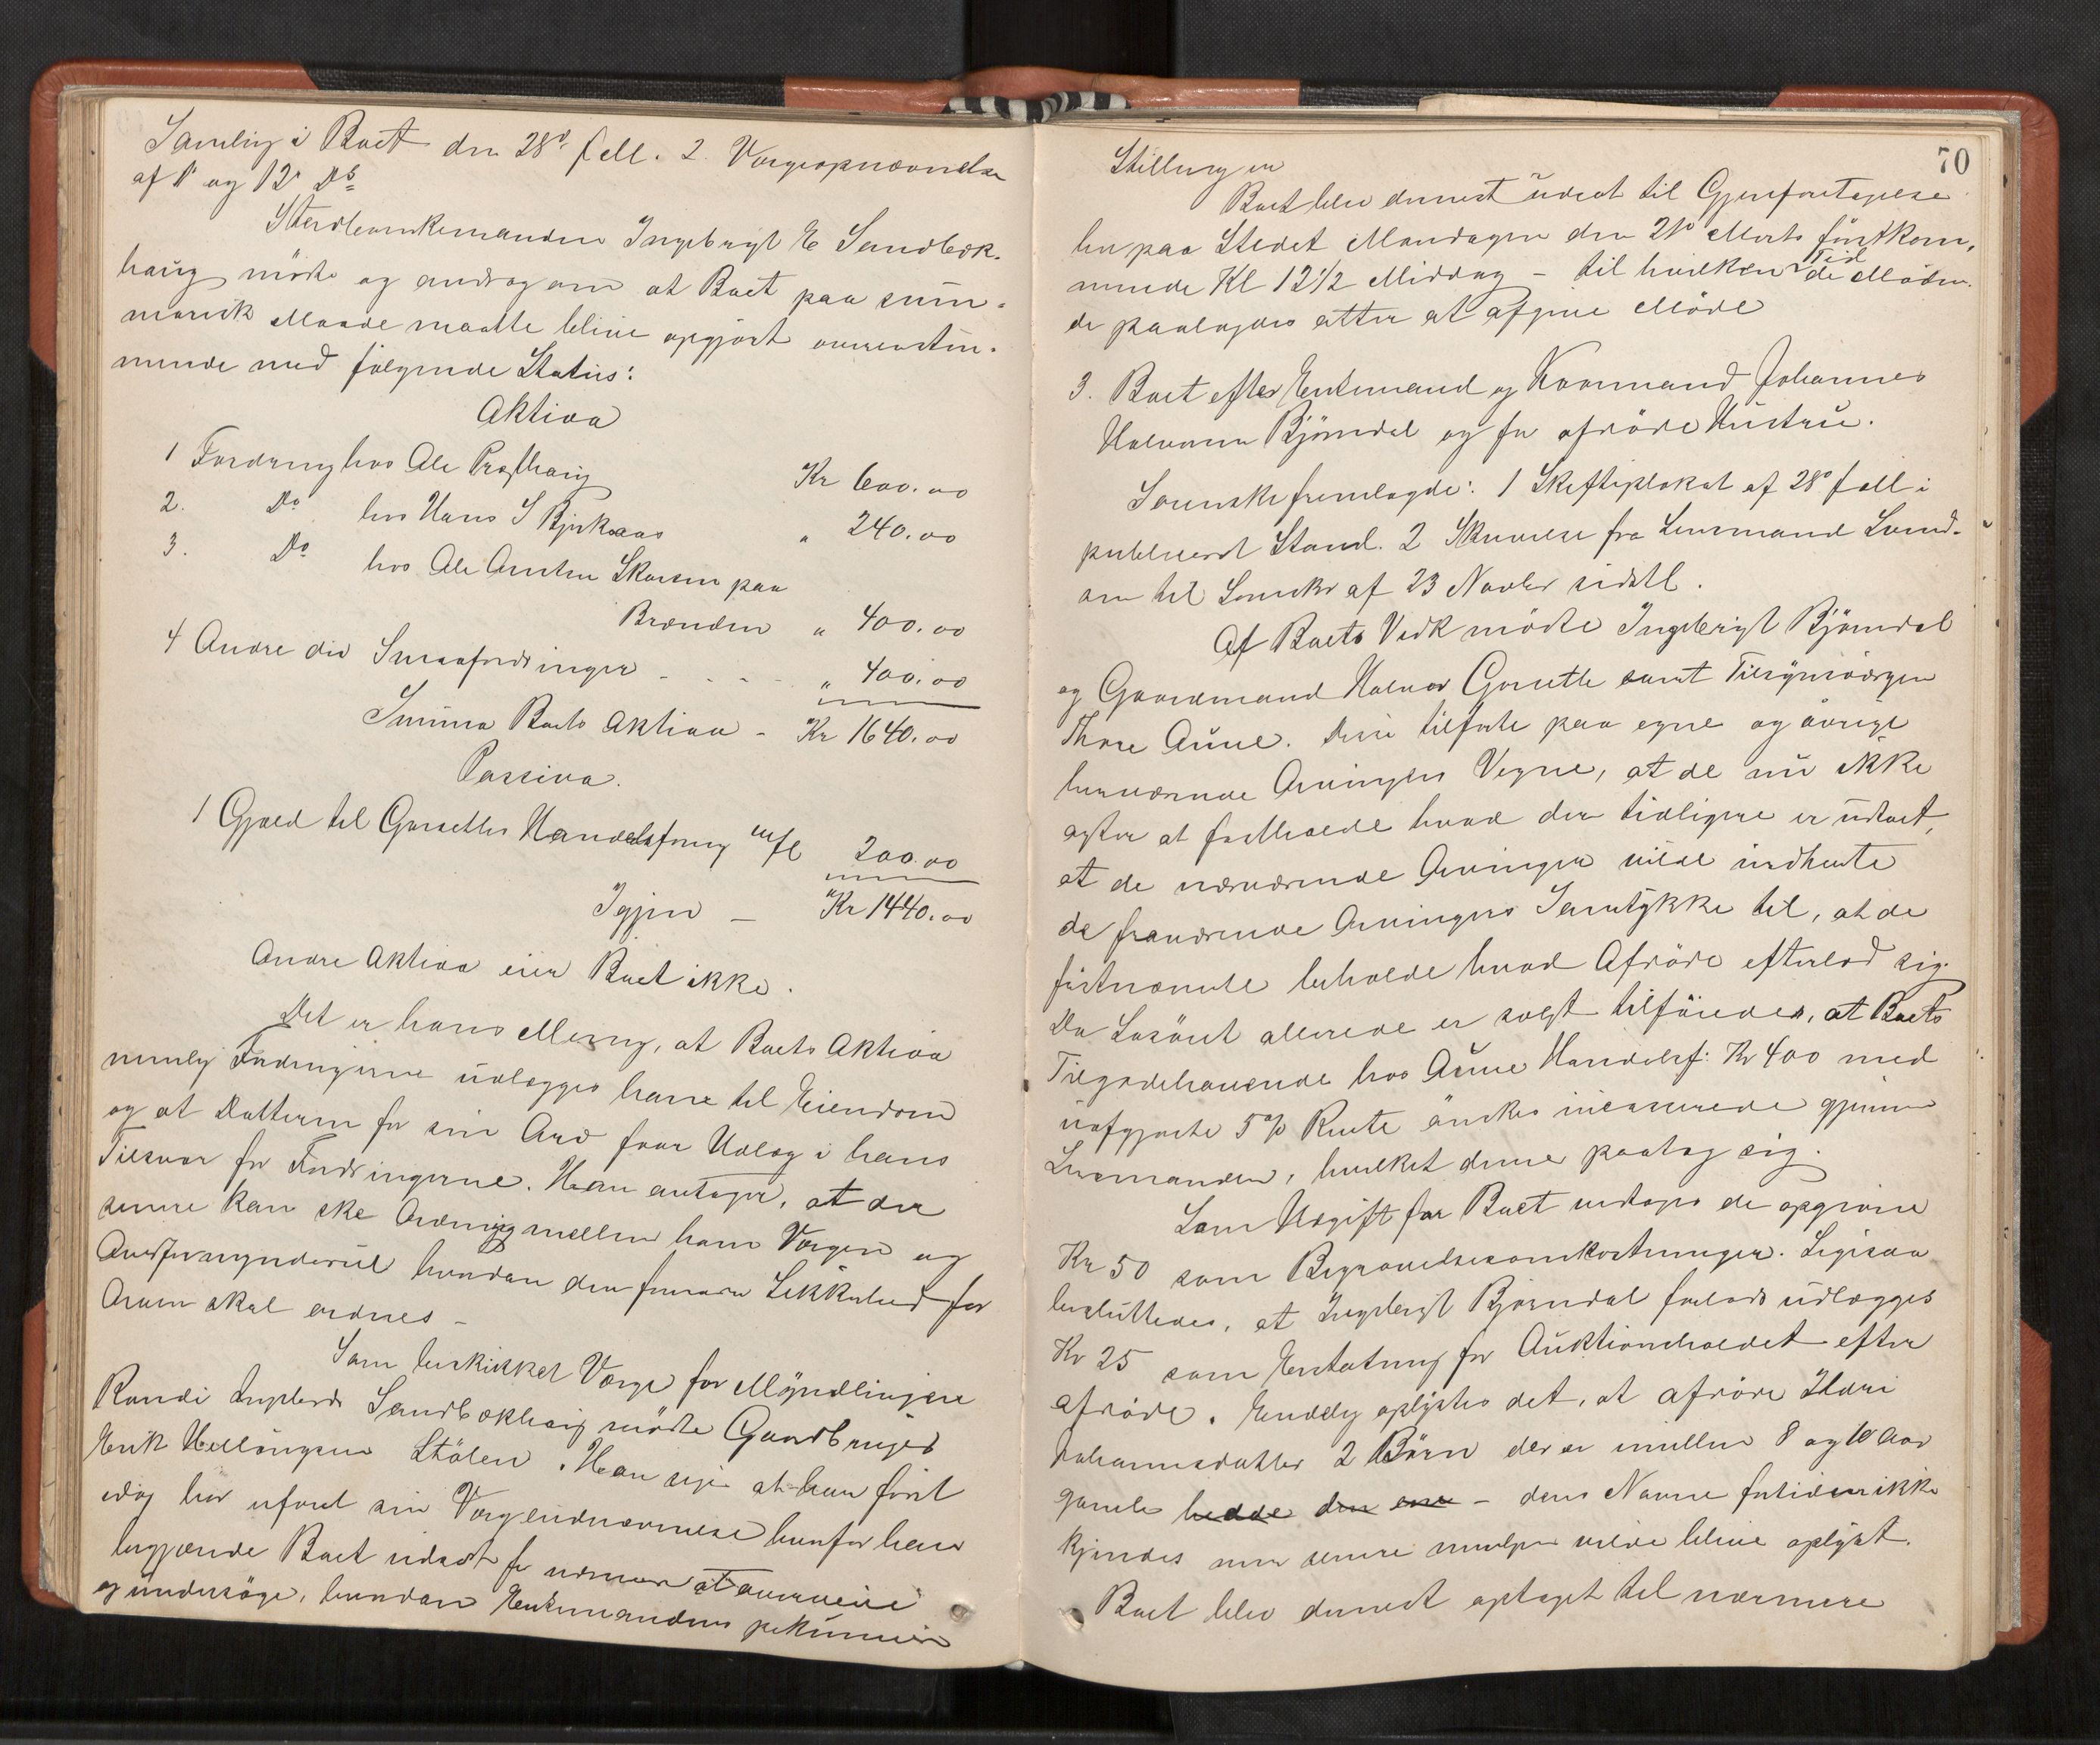 Samling i Boet den 28d f. M. 2 Værgeopnævnelse
af 1' og 12' Ds
Enkemanden Ingebrigt E Sandbæk-
haug mødte og androg om at Boet paa sum-
marisk Maade maatte blive opgjort overenstem-
mende med følgende Status:
Aktiva
1 Fordring hos Ole Præsthaug Kr 600.00
2. Do hos Hans S Bjerkaas " 240.00
3. Do hos Ole Arntsen Skarsem paa
Brænden " 400.00
4 Andre div Smaafordringer - - - - " 400.00
Summa Boets Aktiva - Kr 1640.00
Passiva.
1 Gjæld til Garsetles Handelsforng m/fl 200.00
Igjen — Kr 1440.00
Andre Aktiva eier Boet ikke.
Det er hans Mening, at Boets Aktiva
nemlig Fordringerne udlægges ham til Eiendom
og at Datteren for sin Arv faar Udlæg i hans
Tilsvar for Fordringerne. Han antager, at der
senere kan ske Ordning mellem ham Værgen og
Overformynderiet hvordan den fornødne Sikkerhed for
Arven skal ordnes —
Som beskikket Værge for Myndlingen
Randi Ingebrds Sandbækhaug mødte Gaardbruger
Erik Ellingsen Stølen. Han siger at han først
idag har erfaret sin Værgeudnævnelse hvorfor han
begjærede Boet udsat for nærmere at overveie
og undersøge, hvordan Enkemandens pekuniære
70
Stilling er
Boet blev dernæst udsat til Gjenforetagelse
her paa Stedet Mandagen den 21d Marts førstkom-
mende Kl 12 1/2 Middag - til hvilken Tid de Møden-
de paalagdes atter at afgive Møde
3. Boet efter Enkemand og Kaarmand Johannes
Halvorsen Bjørndal og før afdøde Hustru.
Sorenskr fremlagde: 1 Skifteplakat af 28d f. M. i
publiceret Stand. 2 Skrivelse fra Lensmand Svend-
sen til Sorenskr af 23 Novbr sidstl.
Af Boets Vedk mødte Ingebrigt Bjørndal
og Gaardmand Halvor Garsetle samt Tilsynsværgen
Thore Aune. Disse tilførte paa egne og øvrige
herværende Arvingers Vegne, at de nu ikke
agter at fastholde hvad der tidligere er udtalt,
at de nærværende Arvinger vilde indhente
de fraværende Arvingers Samtykke til, at de
førstnævnte beholde hvad Afdøde efterlod sig.
Da Løsøret allerede er solgt tilførtes, at Boets
Tilgodehavende hos Aune Handelsf: Kr 400 med
uafgjorte 5% Rente ønskes inkasserede gjennem
Lensmanden, hvilket denne paatog sig.
Som Udgift for Boet vedtages de opgivne
Kr 50 som Begravelsesomkostninger. Ligesaa
besluttedes, at Ingebrigt Bjørndal forlods udlægges
Kr 25 som Erstatning for Auktionsholdet efter
afdøde. Endelig oplystes det, at afdøde Mari
Johannesdatter 2 Børn der er imellem 8 og 10 Aar
gamle hedde den ene - dens Navne fortiden ikke
kjendes men senere muligen vilde blive oplyst.
Boet blev dernæst optaget til nærmere